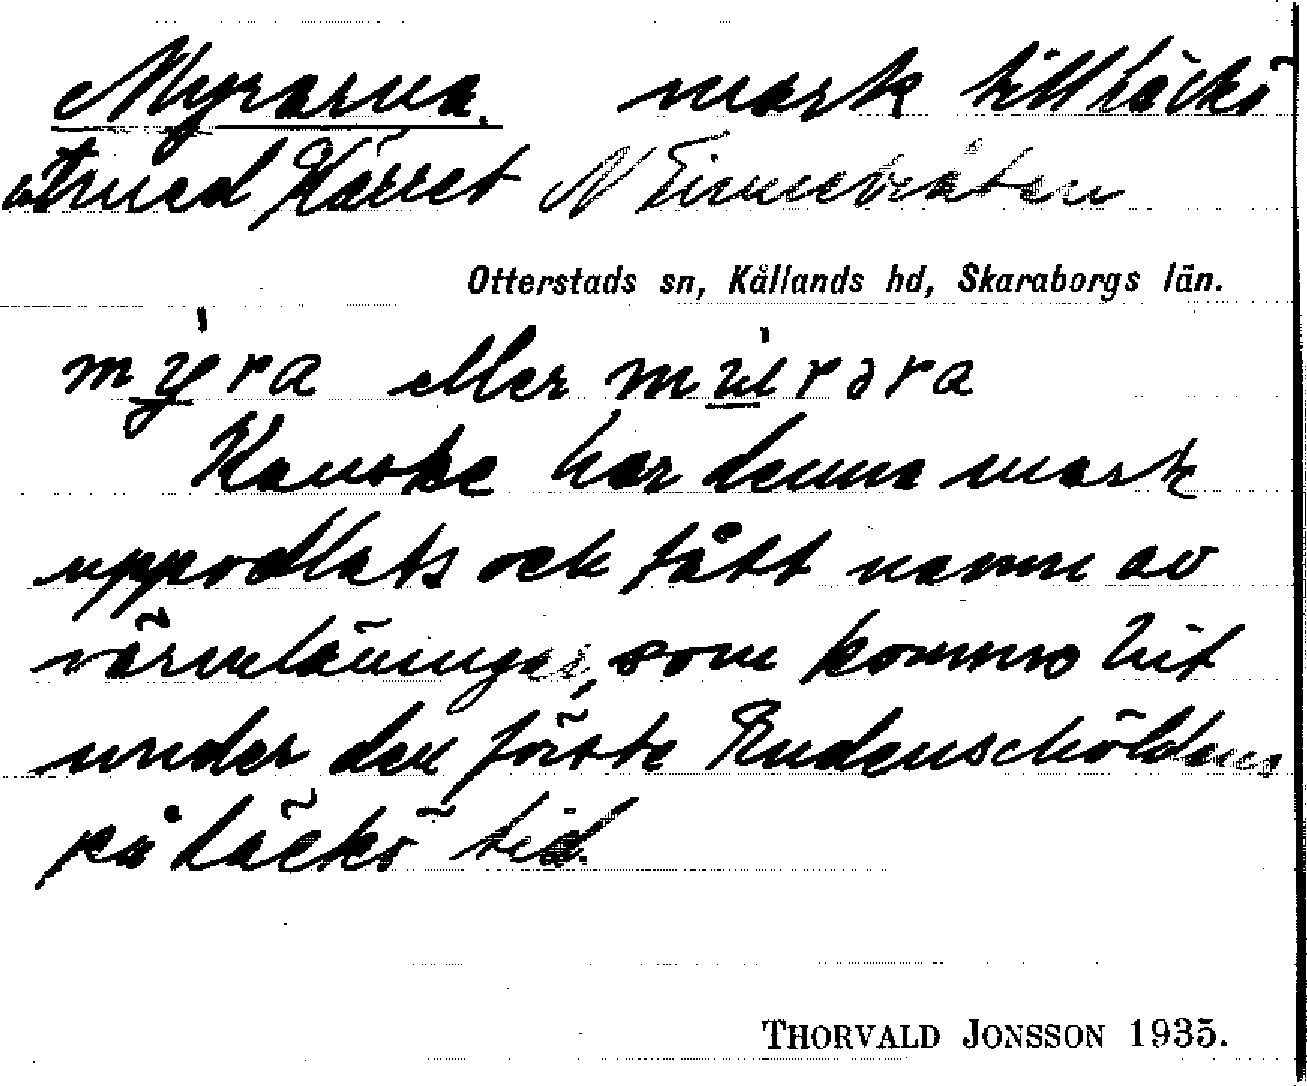 Myrarna. mark till Läckö
utmed Kärret N
Otterstads sn, Kållands hd, Skaraborgs län.
mýra eller
Kanske har denna mark
uppodlats ock fått namn av
värmlänningar, som kommo hit
under den förste Rudenschöldens
på Läckö tid.
THORVALD JONSSON 1935.